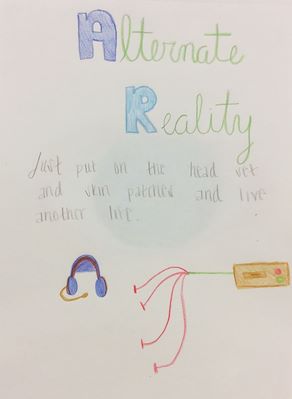 Alternate
Reality
Just put on the head set
and skin patches and live
another life.